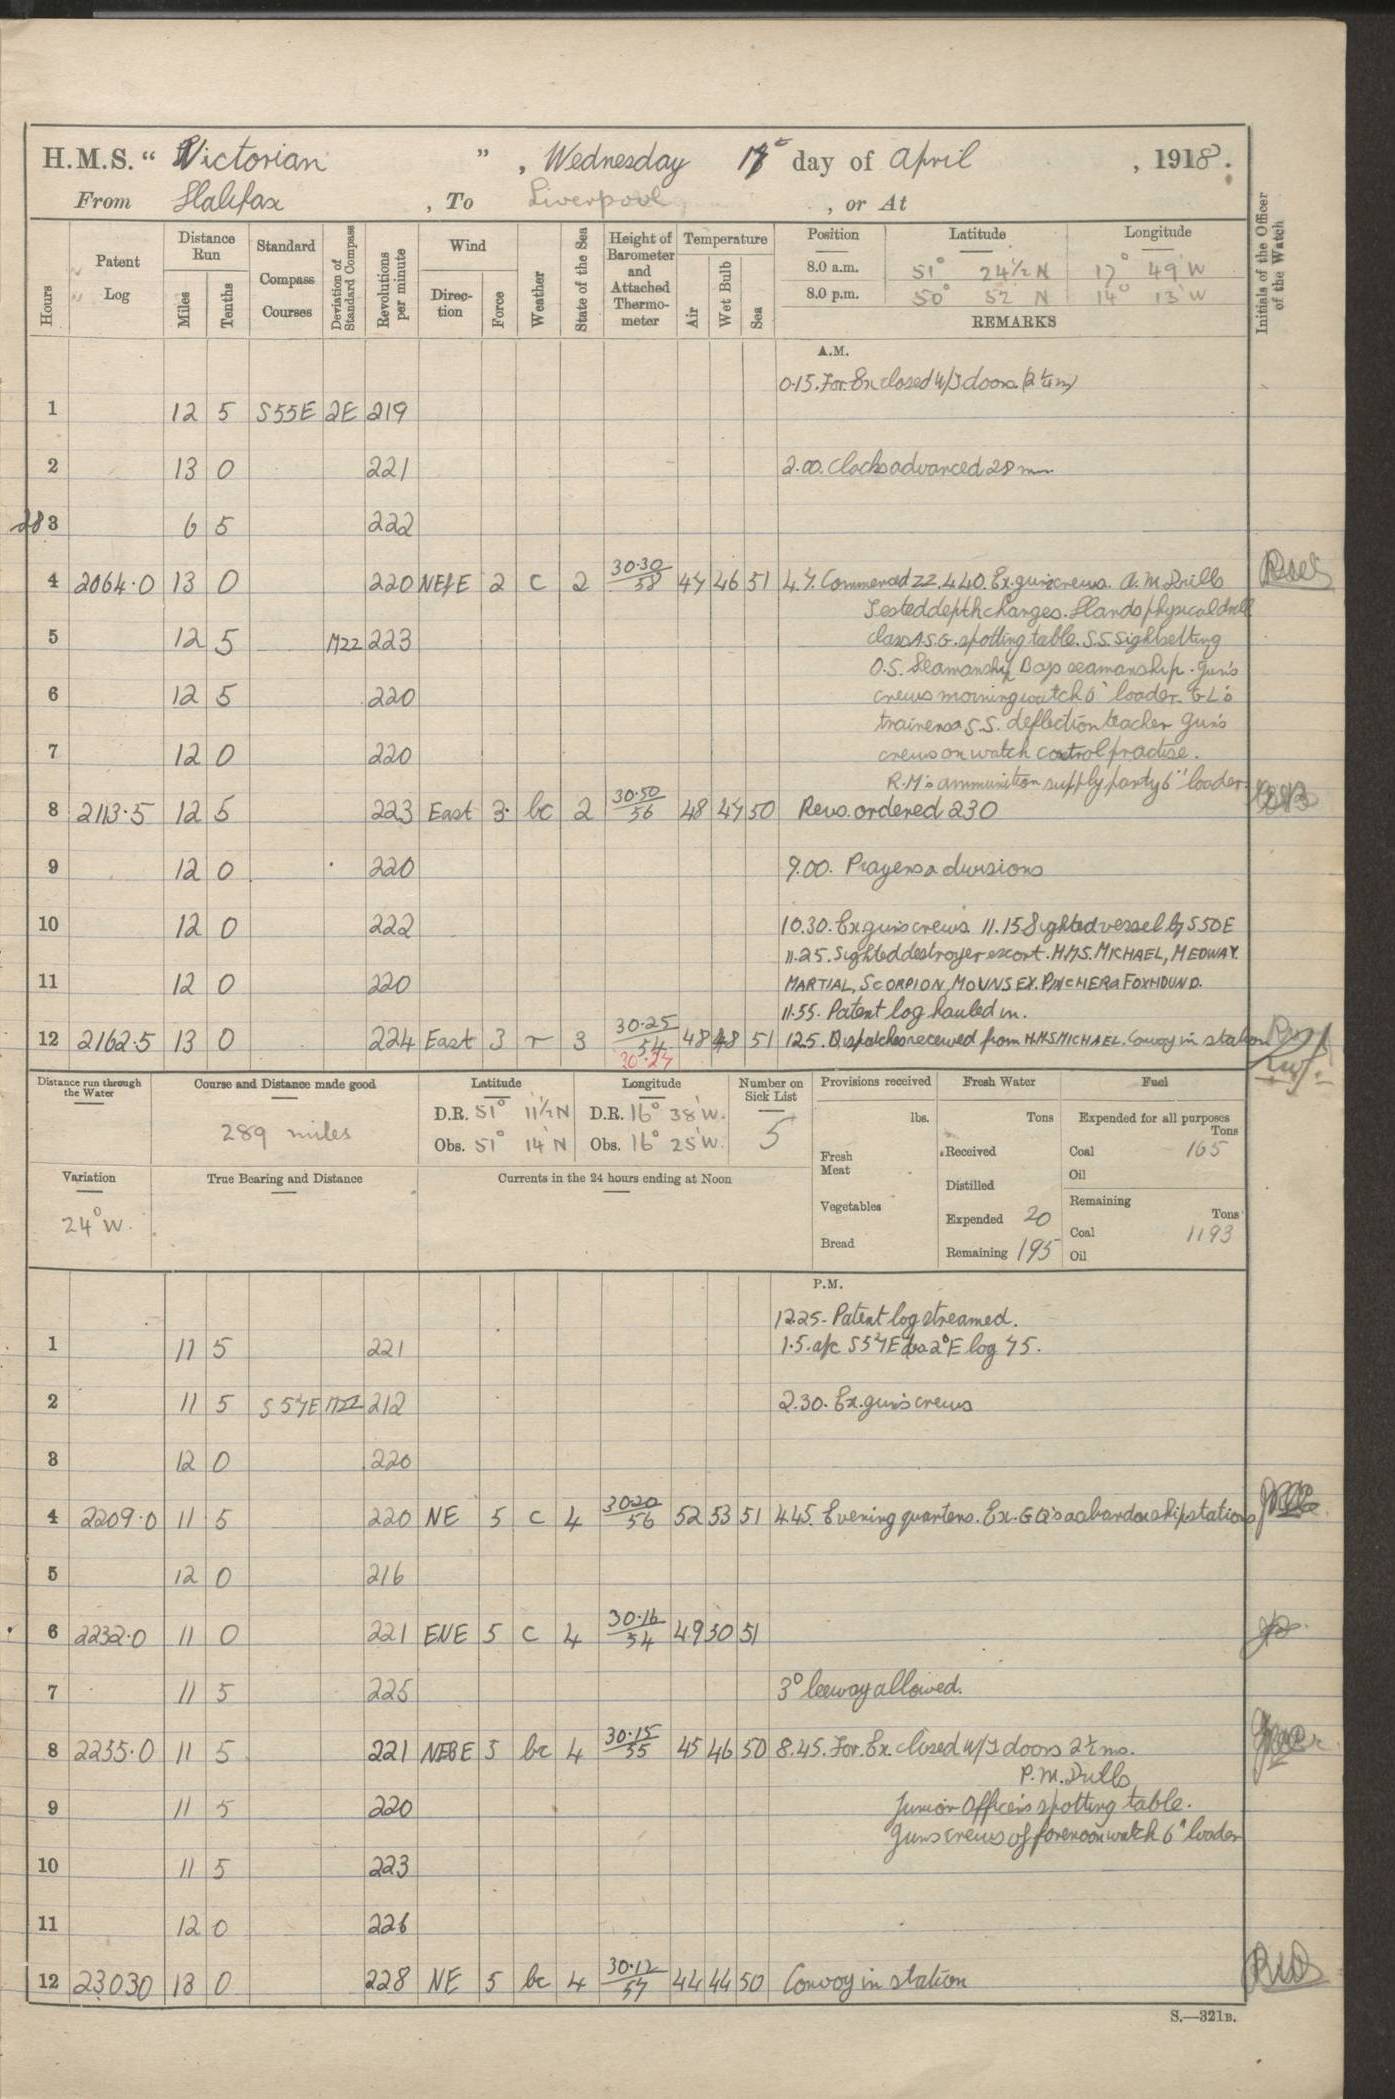 H.M.S. “ Victorian ” , Wednesday 17th day of April , 1918.
From Halifax , To Liverpool , or At
Hours
Patent Log
Distance Run
Miles
Tenths
Standard Compass Courses
Deviation of Standard Compass
Revolutions per minute
Wind
Direction
Force
Weather
State of the Sea
Height of Barometer and Attached Thermometer
Temperature
Air
Wet Bulb
Sea
Position Latitude Longitude
8.0 a.m. 51° 24½ N 17° 49' W
8.0 p.m. 50° 52 N 14° 13' W
REMARKS
Initials of the Officer of the Watch
A.M.
0.15. For. Ex closed W/T doors. (2½m)
1 12 5 S55E 2E 219
2 13 0 221 2.00. Clocks advanced 28m
28 3 6 5 222
4 2064.0 13 0 220 NE½E 2 c 2 30.30/58 47 46 51 4.7. Commenced ZZ. 4.40. Ex. guns crews. A.M Drills
Tested depth charges. Hands physical drill
5 12 5 223 class A.S.G. spotting table. S.S. Sightsetting
O.S. Seamanship Boys seamanship. Guns
6 12 5 220 crews morning watch 6" loader. G.L's
trainers & S.S. deflection teacher Guns
7 12 0 220 crews on watch control practise.
R.M's ammunition supply party 6" loader
8 2113.5 12 5 223 East 3 bc 2 30.50/56 48 47 50 Revs. ordered 230
9 12 0 220 9.00. Prayers & divisions
10 12 0 222 10.30. Ex guns crews. 11.15 Sighted vessel by S50E
11.25. Sighted destroyer escort. HMS. MICHAEL, MEDWAY.
11 12 0 220 MARTIAL, SCORPION, MOUNSEY. PINCHER & FOXHOUND.
11.55. Patent log hauled in.
12 2162.5 13 0 224 East 3 r 3 30.25/54 48 48 51 12.5. Dispatches received from HMS MICHAEL. Convoy in station
30.27
Distance run through the Water
Course and Distance made good
289 miles
Latitude
D.R. 51° 11½ N
Obs. 51° 14' N
Longitude
D.R. 16° 38' W.
Obs. 16° 25' W.
Number on Sick List
5
Provisions received
lbs.
Fresh Meat
Vegetables
Bread
Fresh Water
Tons
Received
Distilled
Expended 20
Remaining 195
Fuel
Expended for all purposes
Tons
Coal 165
Oil
Remaining
Tons
Coal 1193
Oil
Variation
24° W.
True Bearing and Distance
Currents in the 24 hours ending at Noon
P.M.
12.25. Patent log streamed.
1 11 5 221 1.5. a/c S57E dev 2°E log 75.
2 11 5 S57E 212 2.30. Ex. guns crews
3 12 0 220
4 2209.0 11 5 220 NE 5 c 4 30.20/56 52 53 51 4.45. Evening quarters. Ex. GQ's & abandon ship stations
5 12 0 216
6 2232.0 11 0 221 ENE 5 c 4 30.16/54 49 50 51
7 11 5 225 3° leeway allowed.
8 2255.0 11 5 221 NEBE 5 bc 4 30.15/55 45 46 50 8.45. For. Ex. closed W/T doors 2½ms.
P.M. Drills
9 11 5 220 Junior Officers spotting table.
Guns crews of forenoon watch 6" loader
10 11 5 223
11 12 0 226
12 2303.0 13 0 228 NE 5 bc 4 30.12/57 44 44 50 Convoy in station
S.—321B.